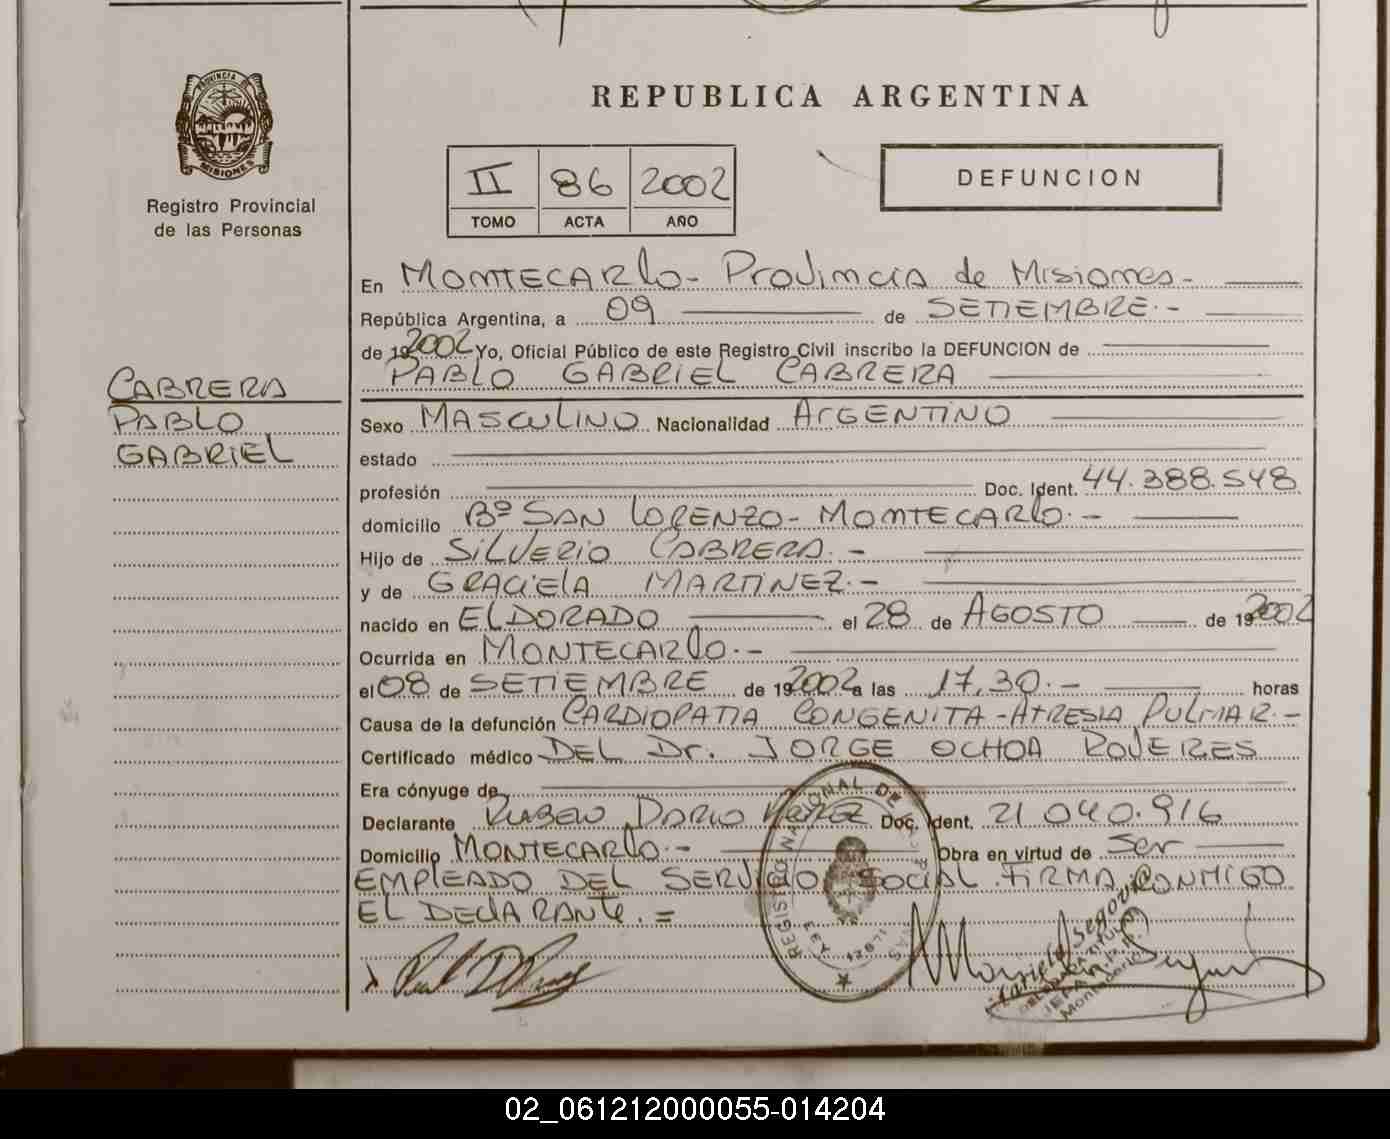 PROVINCIA DE
MISIONES
Registro Provincial
de las Personas
CABRERA
PABLO
GABRIEL
REPUBLICA ARGENTINA
II 86 2002
TOMO ACTA AÑO
DEFUNCION
En MONTECARlo - Provincia de Misiones -
República Argentina, a 09 de SETIEMBRE.-
de 19 2002 Yo, Oficial Público de este Registro Civil inscribo la DEFUNCION de
PABLO GABRIEL CABRERA
Sexo MASCULINO Nacionalidad ArGENTINO
estado
profesión Doc. Ident. 44.388.548
domicilio Bº SAN LORENZO - MONTECARlo.-
Hijo de SiLVERiO CABRERA.-
y de GRACiElA MARTINEZ.-
nacido en ELDORADO el 28 de AGOSTO de 19 2002
Ocurrida en MONTECARlO.-
el 08 de SETIEMBRE de 19 2002 a las 17,30.- horas
Causa de la defunción CARDIOPATIA CONGENITA - ATRESIA PULMAR.-
Certificado médico DEL Dr. JORGE OCHOA ROVERES
Era cónyuge de
Declarante RUBEN DARIO Doc. Ident. 21 040.916
Domicilio MONTECARlO.- Obra en virtud de Ser
EMPLEADO DEL SERVICIO SOCIAL. FIRMA CONMIGO
EL DECLARANTE.=
REGISTRO NACIONAL DE
02_061212000055-014204